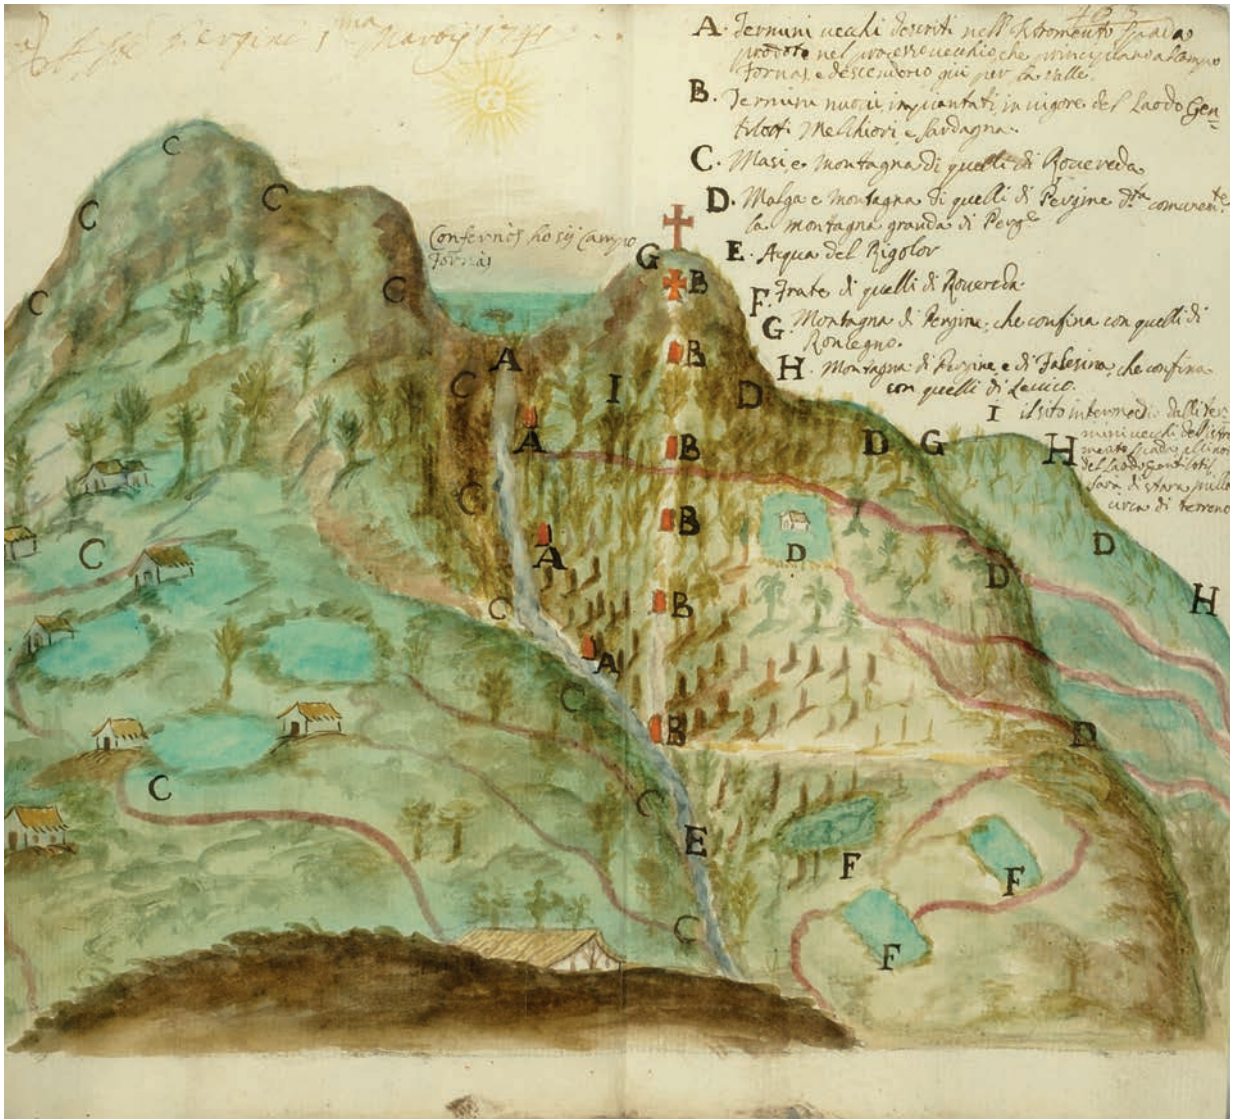 Pergine 1ma 1741
A. Termini vecchi descriti nell'Istromento Spada
prodoto nel processo vecchio, che principiano a Campo
Fornas, e descendono giù per la valle.
B. Termini nuovi impiantati in vigore del Laodo Gen=
tilotti Melchiori, e Sardagna.
C. Masi, e montagna di quelli di Rovereda
D. Malga e montagna di quelli di Pergine d.ta comunem.te
la montagna granda di Perg.e
E. Acqua del Rigolor
F. Frate di quelli di Rovereda
G. Montagna di Pergine, che confina con quelli di
Roncegno.
H. Montagna di Pergine, e di Falesina, che confina
con quelli di Levico.
I il sito intermedio dalli ter=
mini vecchi dell'istro
mento Spada, alli novi
del Laodo Gentilotti
sarà di stara mille
circa di terreno
Campo
Fornas
C
C
C
C
C
G
B
A
C
I
B
D
A
B
D
G
H
C
A
B
D
D
H
C
C
B
D
A
C
B
D
C
C
E
F
F
C
F